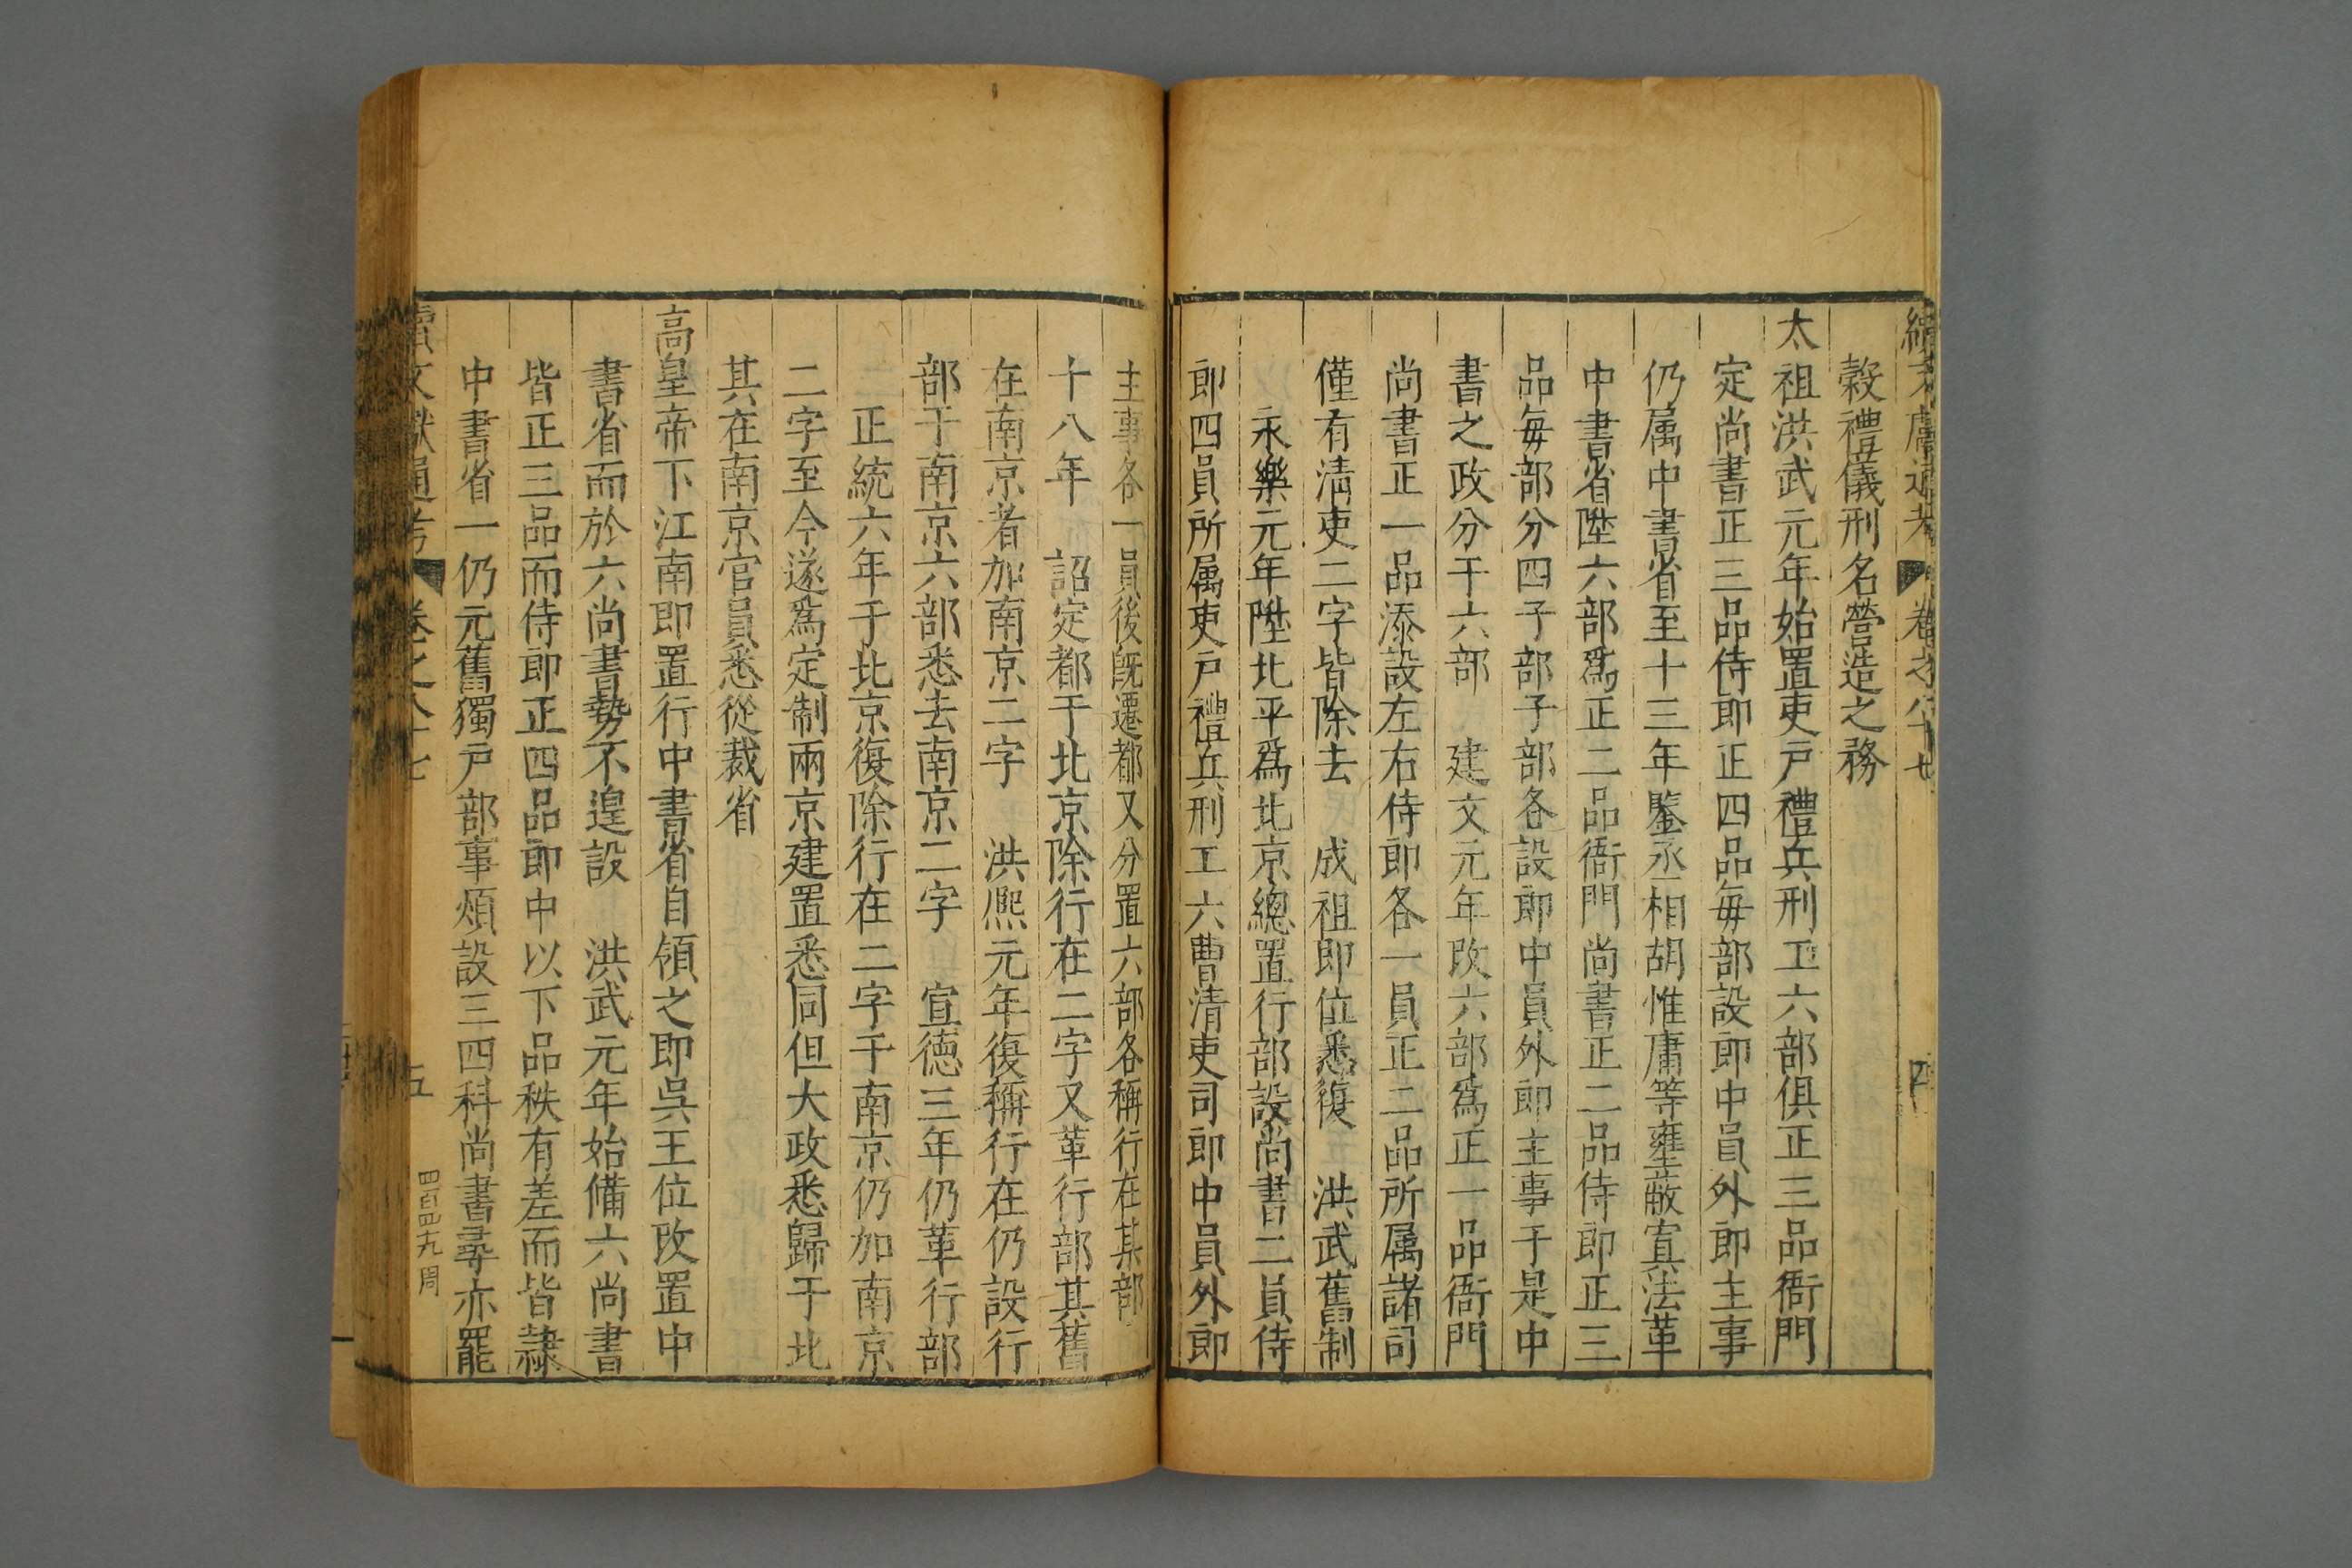 續文獻通考 卷之八十七
穀禮儀刑名營造之務
太祖洪武元年始置吏戸禮兵刑工六部俱正三品衙門
定尚書正三品侍郎正四品每部設郎中員外郎主事
仍属中書省至十三年鑒丞相胡惟庸等壅蔽寘法革
中書省陞六部爲正二品衙門尚書正二品侍郎正三
品每部分四子部子部各設郎中員外郎主事于是中
書之政分于六部 建文元年改六部爲正一品衙門
尚書正一品添設左右侍郎各一員正二品所属諸司
僅有清吏二字皆除去 成祖即位悉復 洪武舊制
永樂元年陞北平爲北京總置行部設尚書二員侍
郎四員所属吏戸禮兵刑工六曹清吏司郎中員外郎
主事各一員後旣遷都又分置六部各稱行在某部
十八年 詔定都于北京除行在二字又革行部其舊
在南京者加南京二字 洪熈元年復稱行在仍設行
部于南京六部悉去南京二字 宣德三年仍革行部
正統六年于北京復除行在二字于南京仍加南京
二字至今遂爲定制兩京建置悉同但大政悉歸于北
其在南京官員悉從裁省
高皇帝下江南即置行中書省自領之即吳王位改置中
書省而於六尚書勢不遑設 洪武元年始備六尚書
皆正三品而侍郎正四品郎中以下品秩有差而皆隸
中書省一仍元舊獨戸部事煩設三四科尚書尋亦罷
續文獻通考 卷之八十七 五 四百四九周